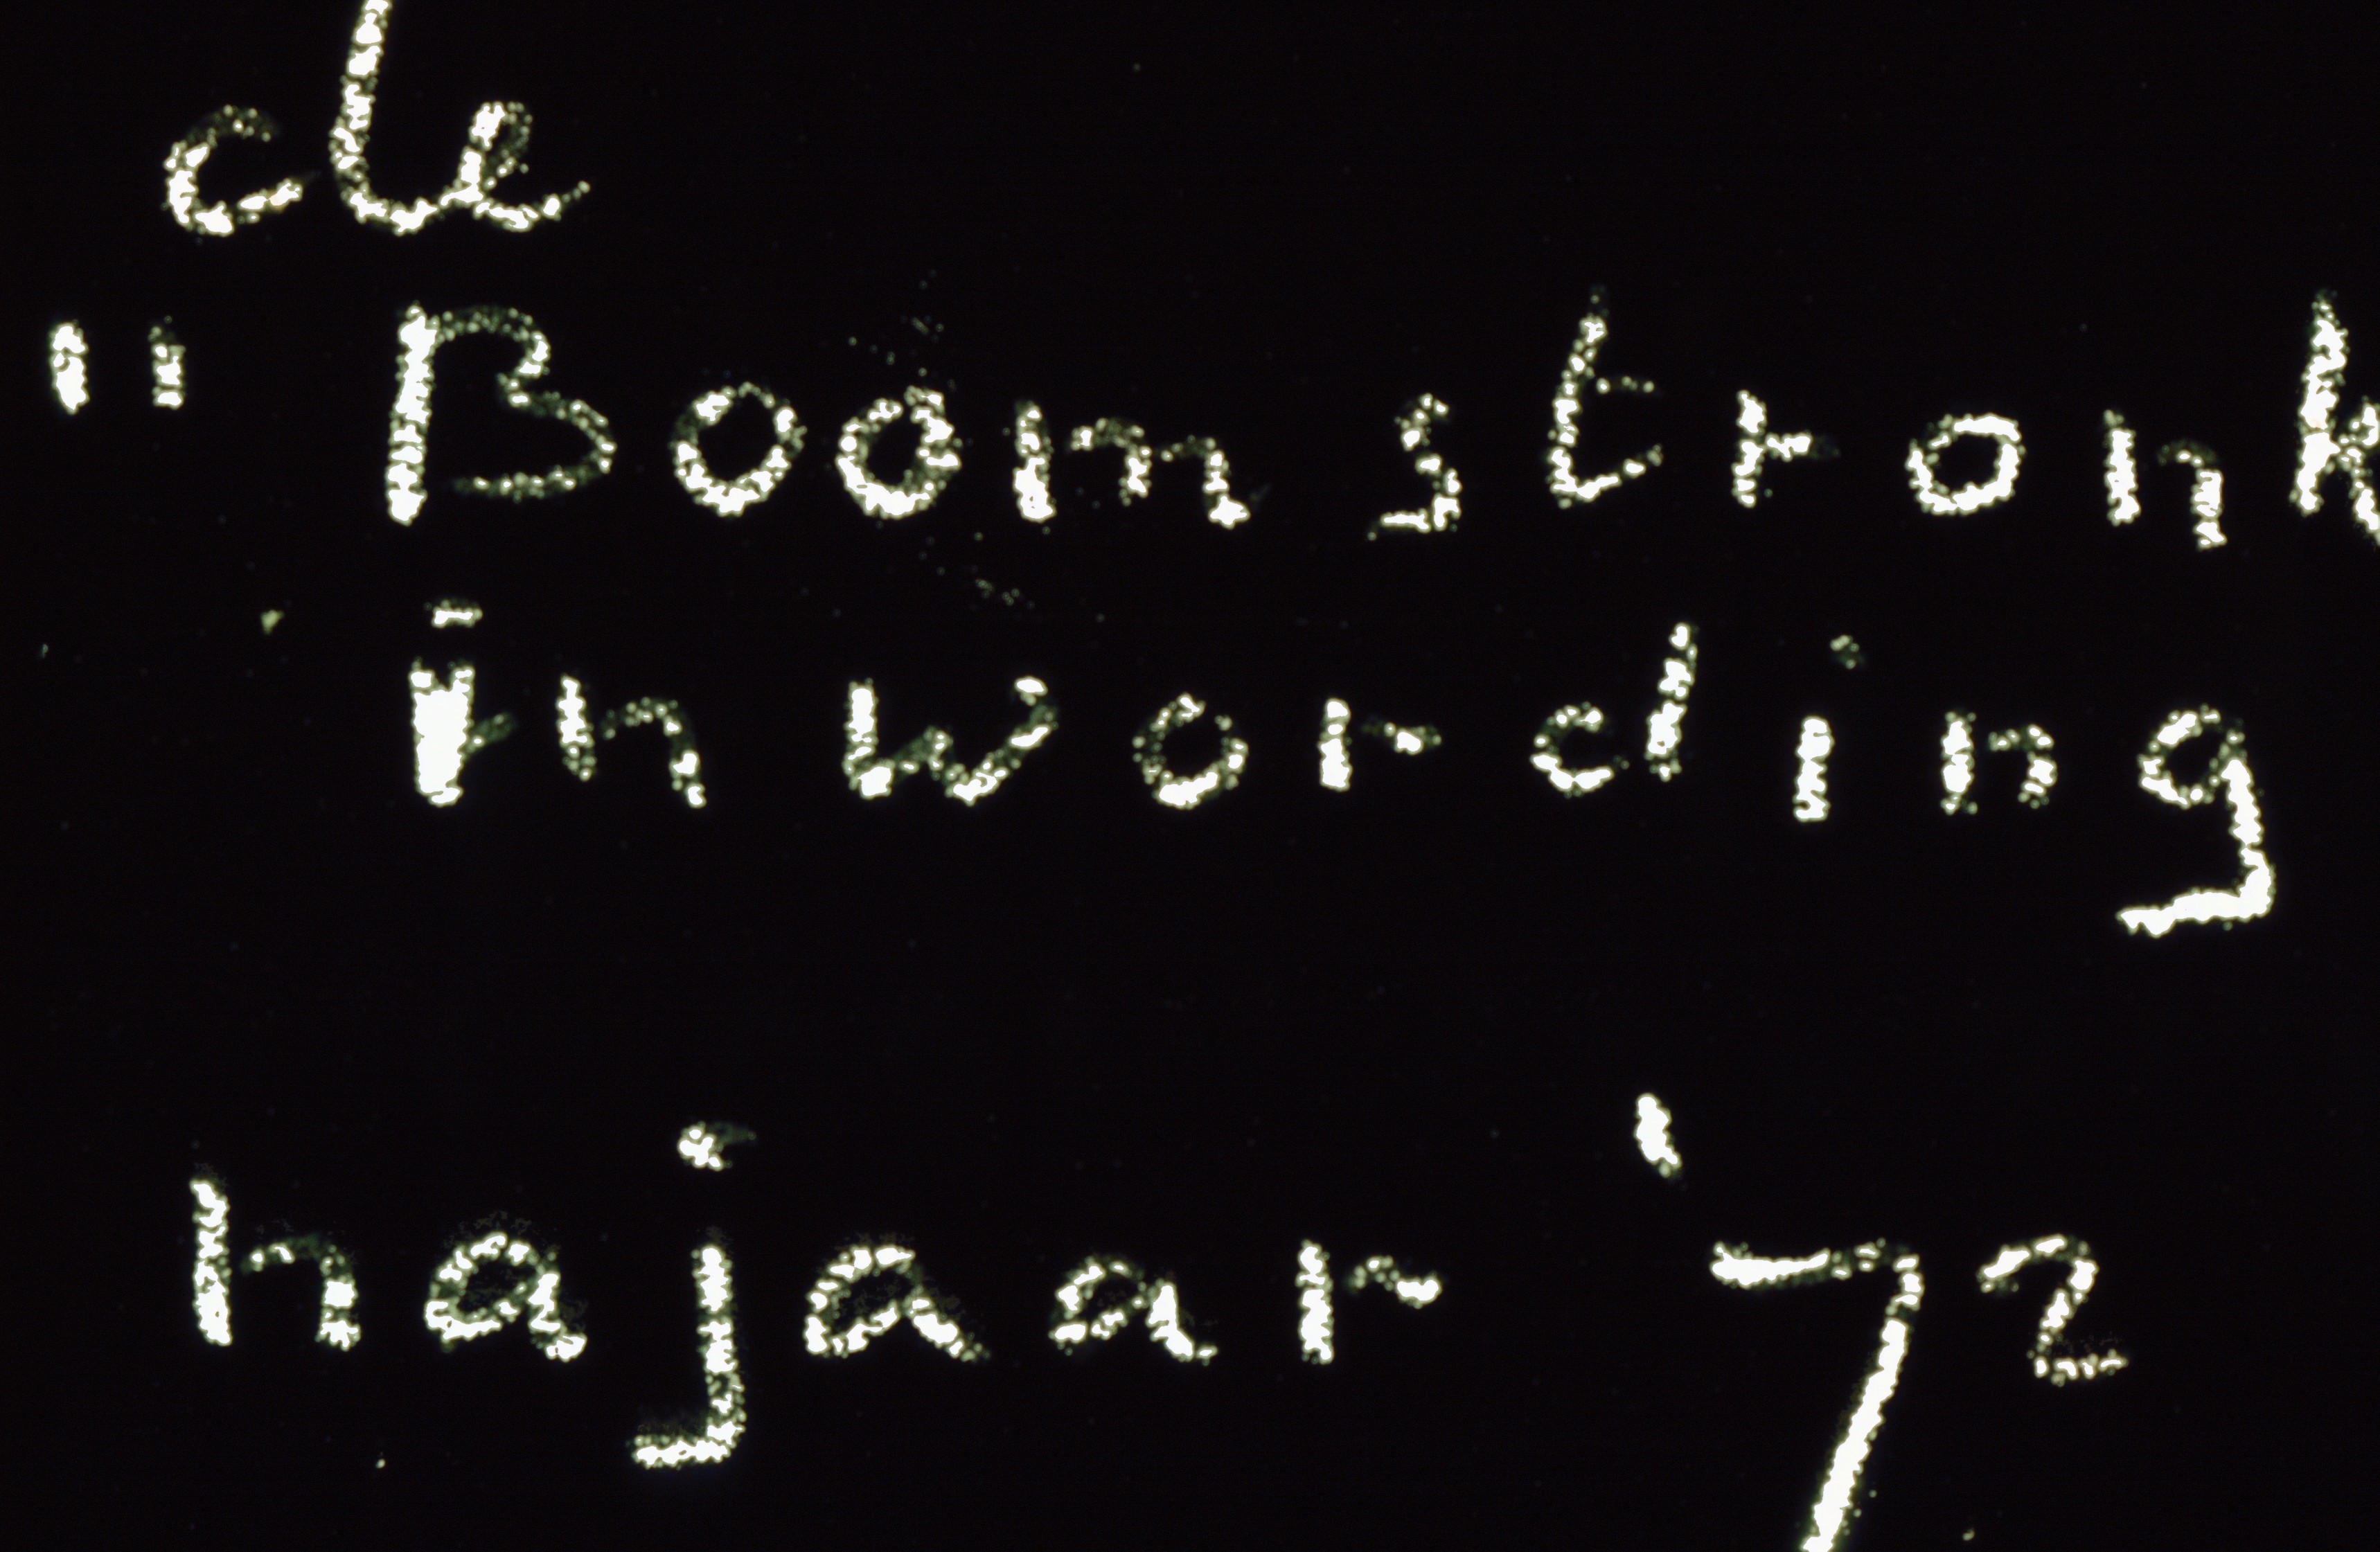 de
" Boomstronk
in wording
hajaar '72